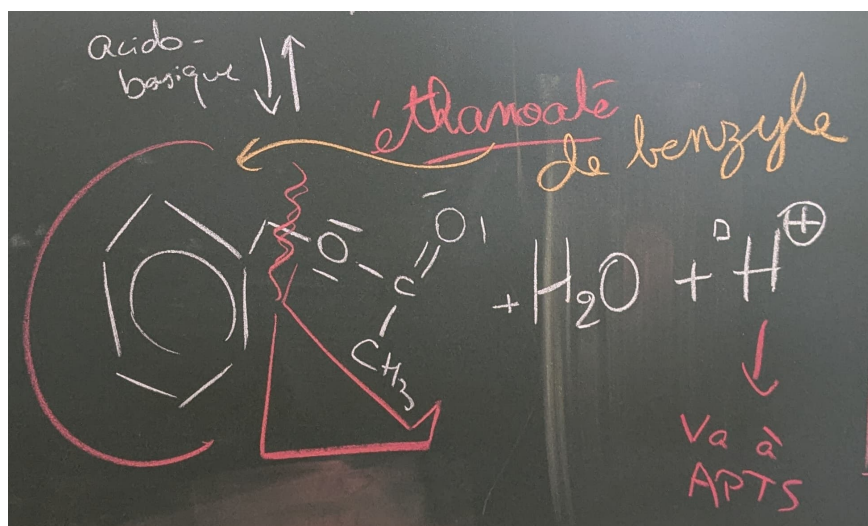 acido-
basique
éthanoate
de benzyle
O
O
C
CH₃
+ H₂O + H⊕
Va à
APTS